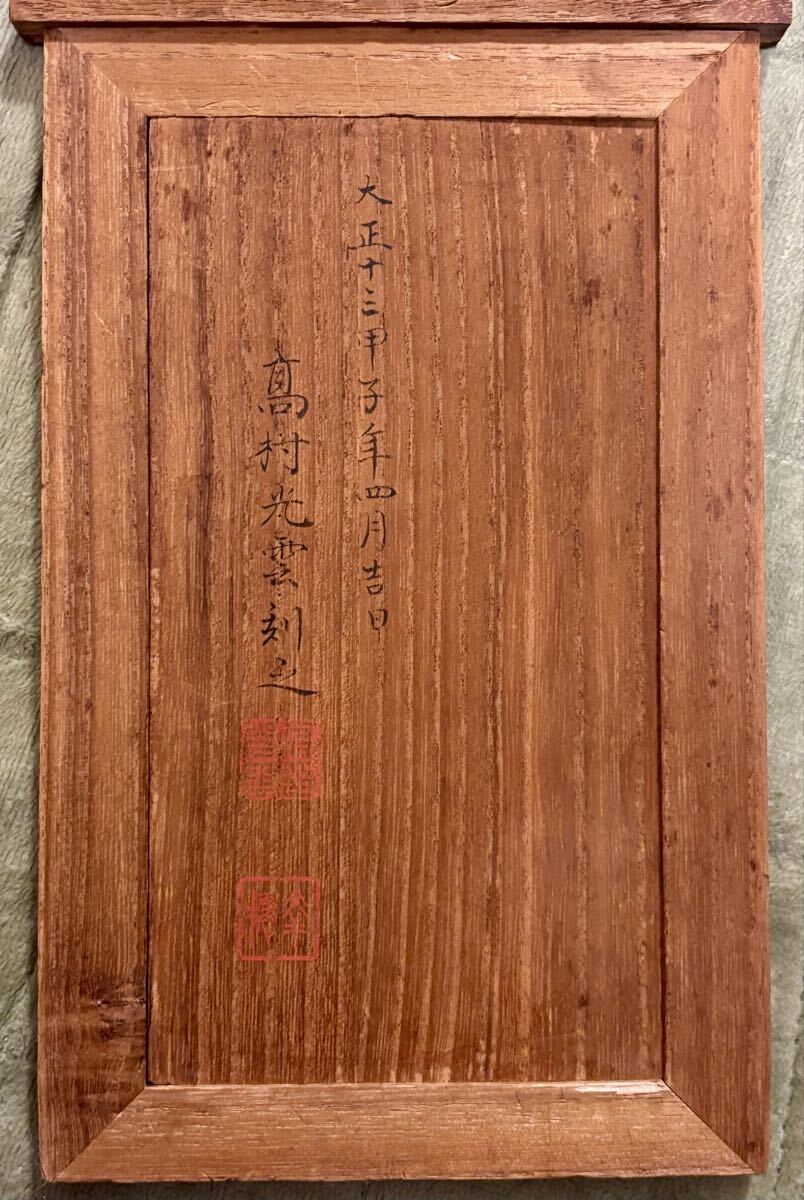 大正十三甲子年四月吉日
髙村光雲刻之